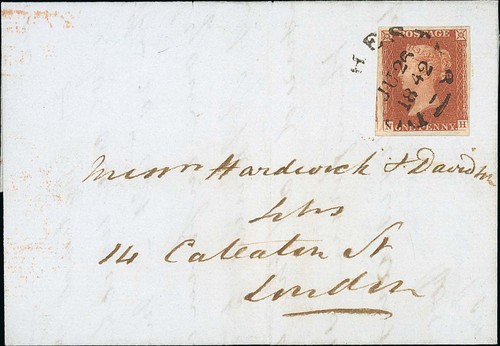 POSTAGE
JU 26
1842
N H
ONE PENNY
Messrs Hardwick & Davidson
14 Cateaton St
London